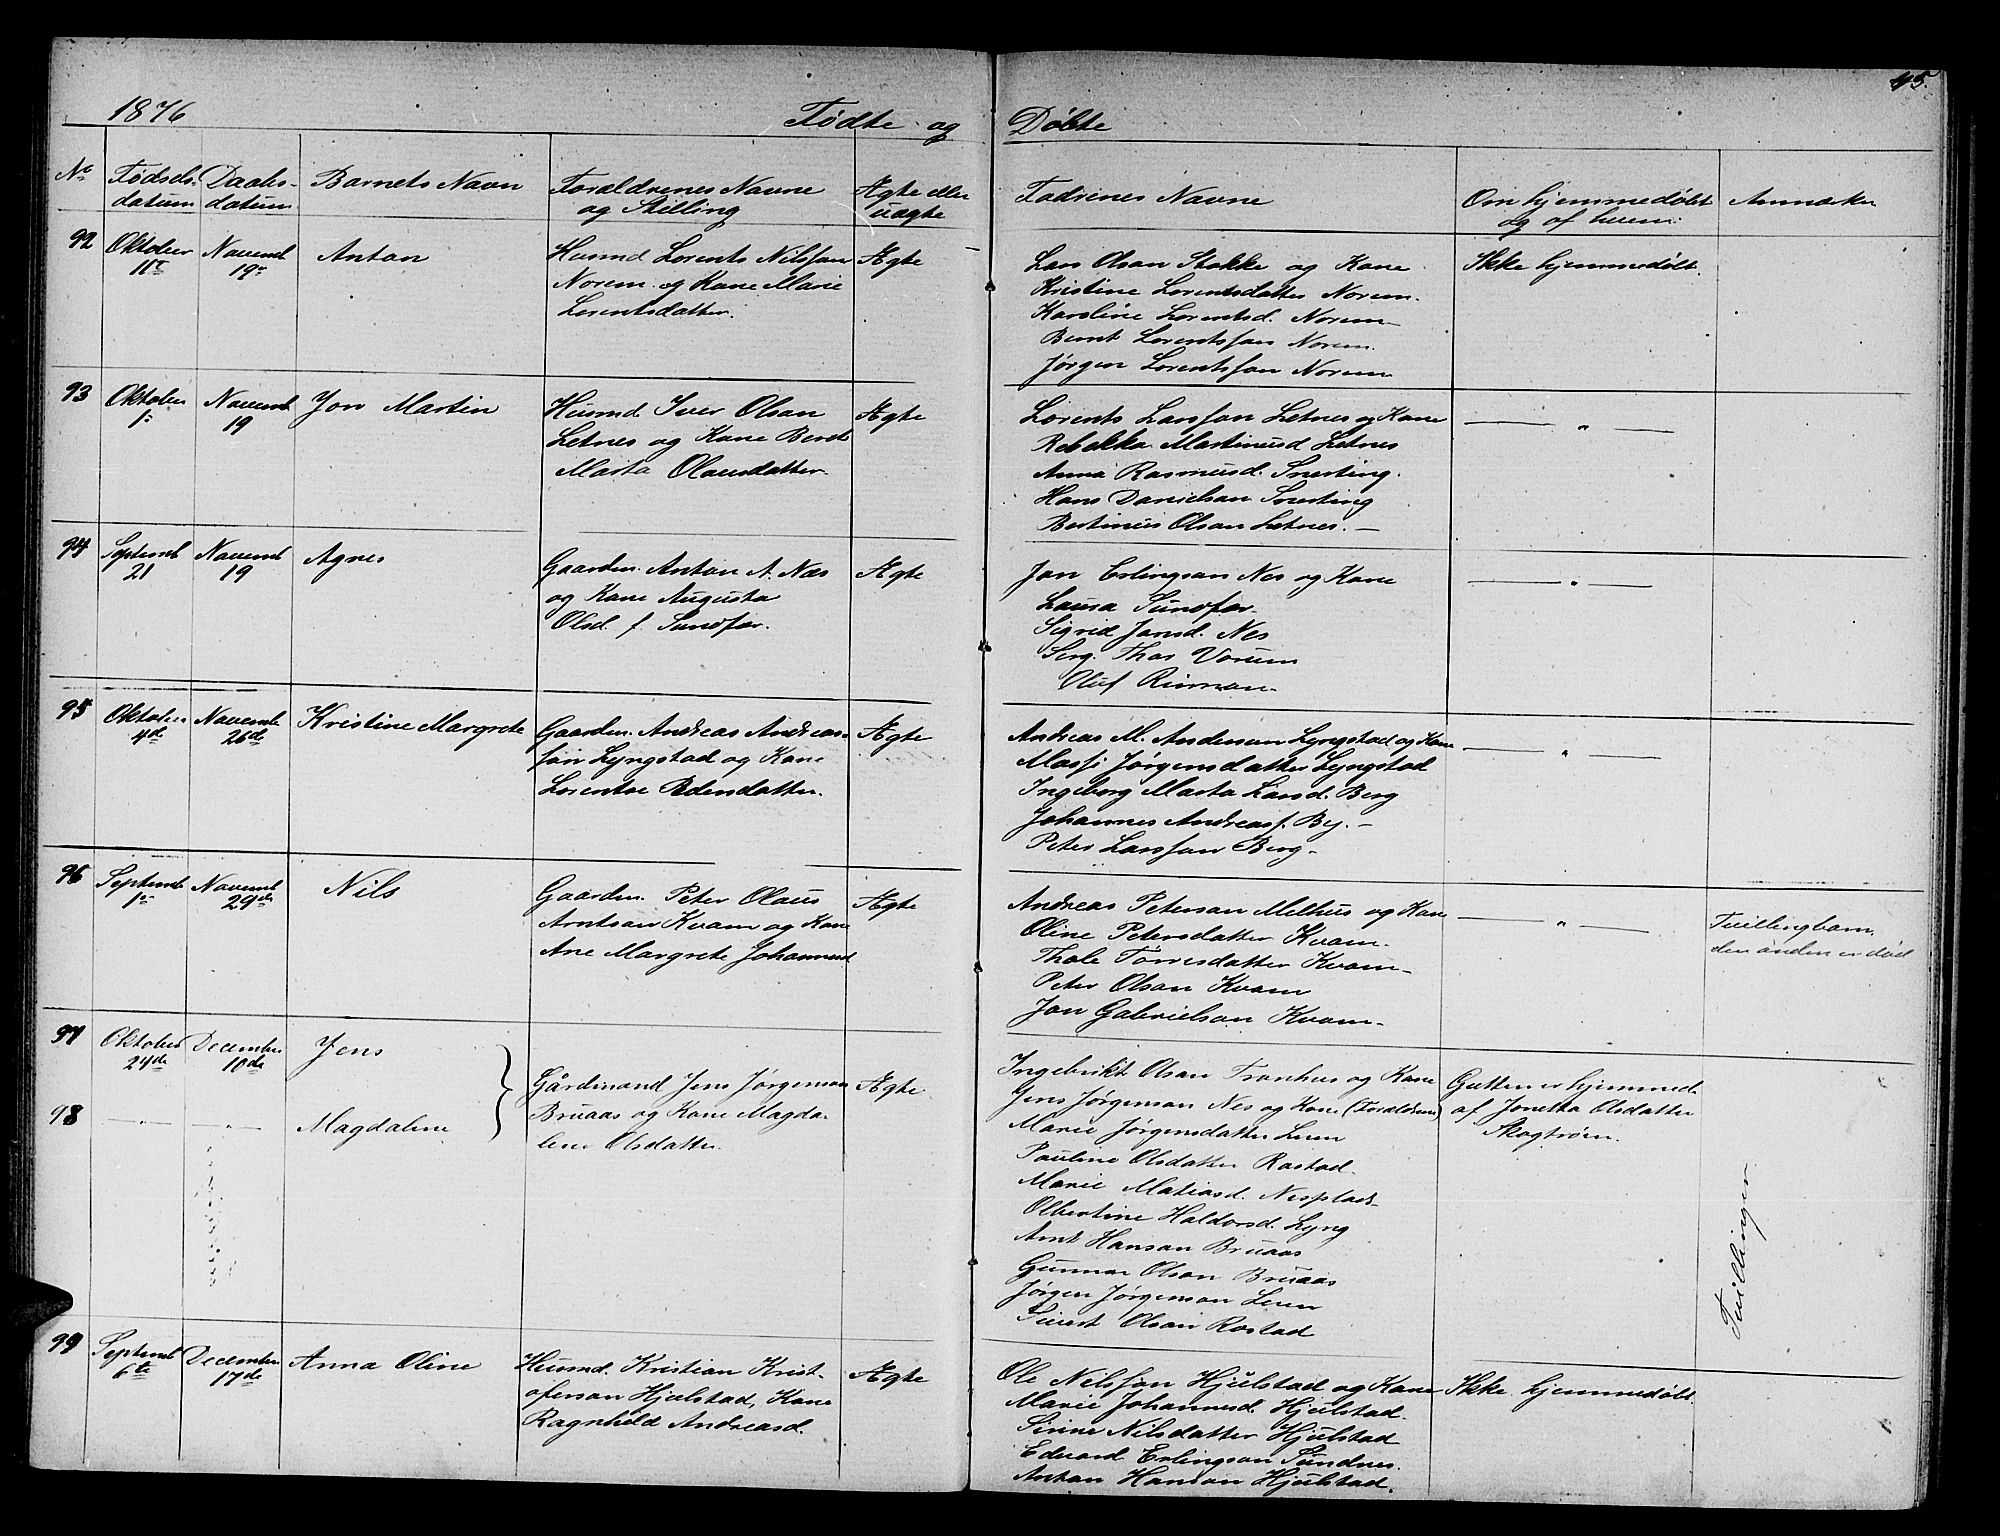 1876
Fødte og
Døbte
45.
No Fødsels- datum Daabs- datum Barnets Navn Forældrenes Navne og Stilling Ægte eller uægte Fadrenes Navne Om hjemmedøbt og af hvem: Anmærkn
92 Oktober 11te Novemb 19de Anton
Husmd Lorents Nilssøn
Norem og Kone Marie
Lorentsdatter.
Ægte
Lars Olsan Stokke og Kone
Kristine Lorentsdatter Norem.
Karoline Lorentsd. Norem
Bernt Lorentssøn Norem.
Jørgen Lorentssøn Norem
Ikke hjemmedøbt.
93 Oktober 1ste Novemb 19 Jon Martin
Husmd. Iver Olsan
Letnes og Kone Beret
Marta Olausdatter
Ægte
Lorents Larssøn Letnes og Kone
Rebekka Martinusd Letnes
Anna Rasmusd. Snerting.
Hans Danielsan Snerting
Bertinus Olsan Letnes. —
— " —
94 Septemb 21 Novemb 19 Agnes
Gaarden. Anton A. Næs
og Kone Augusta
Olsd. f. Sundfær.
Ægte
Jon Erlingsan Nes og Kone
Laura Sundfær.
Sigrid Jonsd. Nes
Serg. Thor Vorum
Oluf Rinnan.
— " —
95 Oktober 4de Novemb 26de Kristine Margrete
Gaarden. Andreas Andreas-
søn Lyngstad og Kone
Lorentse Pedersdatter.
Ægte
Andreas M. Andersan Lyngstad og Kone
Massi Jørgensdatter Lyngstad
Ingeborg Marta Larsd. Berg
Johannes Andreass. By. —
Peter Larssøn Berg —
— " —
96 Septemb 1ste Novemb 29de Nils
Gaarden Peter Olaus
Arntsan Kvam og Kone
Ane Margrete Johannesd
Ægte
Andreas Petersan Melhus og Kone
Oline Petersdatter Kvam.
Thale Torresdatter Kvam—
Peter Olsan Kvam
Jon Gabrielsan Kvam—
— " —
Tvillingbarn,
den anden er død
97 Oktober 24de December 10de Jens
98 — " — — " — Magdalene
Gårdmand Jens Jørgensan
Bruaas og Kone Magda-
lene Olsdatter.
Ægte
Ingebrikt Olsan Tronhus og Kone
Jens Jørgensan Nes og Kone (Forældrene)
Marie Jørgensdatter Leren
Pauline Olsdatter Rostad.
Marie Matiasd. Nesplads
Olbertine Haldorsd. Lyng
Arnt Hansan Bruaas
Gunnar Olsan Bruaas
Jørgen Jørgensan Leren
Sivert Olsan Rostad
Gutten er hjemmed.
af Jonetta Olsdatter
Skogtrøen.
Tvillinger
99 Septemb 6te December 17de Anna Oline
Husmd. Kristian Krist-
ofersan Hjulstad, Kone
Ragnhild Andreasd.
Ægte
Ole Nilssøn Hjulstad og Kone
Marie Johannesd. Hjulstad.
Sirine Nilsdatter Hjulstad
Edvard Erlingsan Sundnes.
Anton Hansan Hjulstad.
Ikke hjemmedøbt.